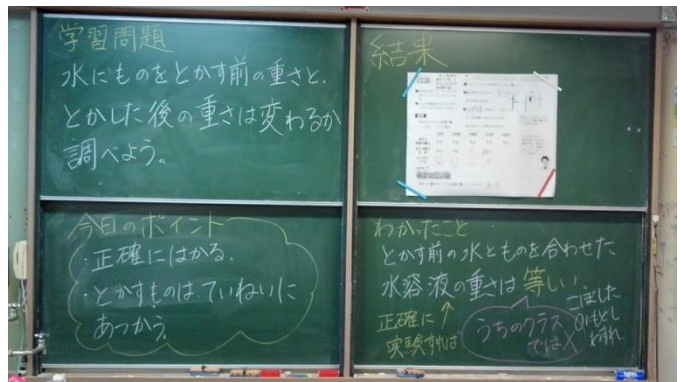 学習問題
水にものをとかす前の重さと、
とかした後の重さは変わるか
調べよう。
今日のポイント
・正確にはかる。
・とかすものは、ていねいに
あつかう。
結果
わかったこと
とかす前の水とものを合わせた
水溶液の重さは等しい。
正確に
実験すれば
うちのクラス
では×
こぼした
0にもどし
わすれ